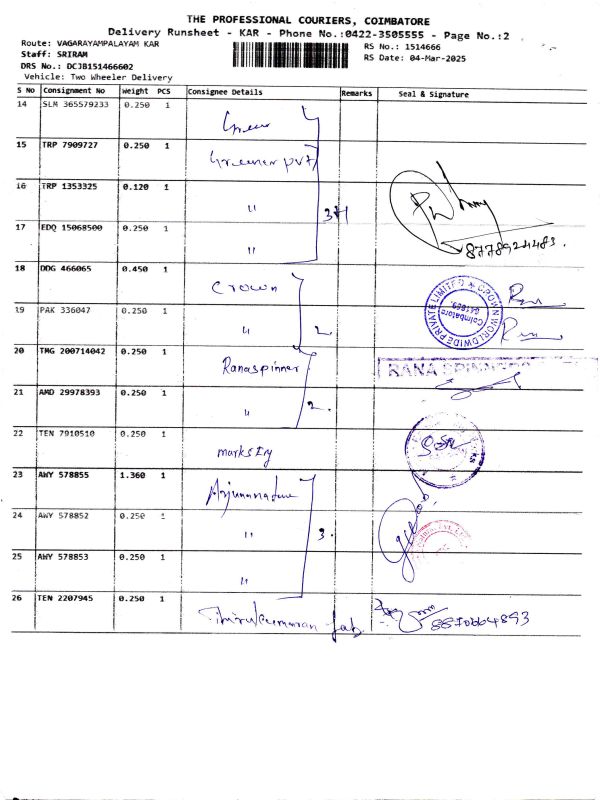 THE PROFESSIONAL COURIERS, COIMBATORE
Delivery Runsheet - KAR - Phone No.:0422-3505555 - Page No.:2
Route: VAGARAYAMPALAYAM KAR
RS No.: 1514666
Staff: SRIRAM
RS Date: 04-Mar-2025
DRS No.: DCJB151466602
Vehicle: Two Wheeler Delivery
S No Consignment No Weight PCS Consignee Details Remarks Seal & Signature
14 SLM 365579233 0.250 1
15 TRP 7909727 0.250 1 Greener pvt
16 TRP 1353325 0.120 1 "
17 EDQ 15068500 0.250 1 " 8778924483.
18 DDG 466065 0.450 1 Crown
CROWN WORLDWIDE PRIVATE LIMITED
Coimbatore
19 PAK 336047 0.250 1 " 2
20 TMG 200714042 0.250 1 Ranaspinner RANA
21 AMD 29978393 0.250 1 " 2.
22 TEN 7910510 0.250 1
23 AWY 578855 1.360 1
24 AWY 578852 0.250 1 " 3.
25 AWY 578853 0.250 1 "
26 TEN 2207945 0.250 1 8870664893